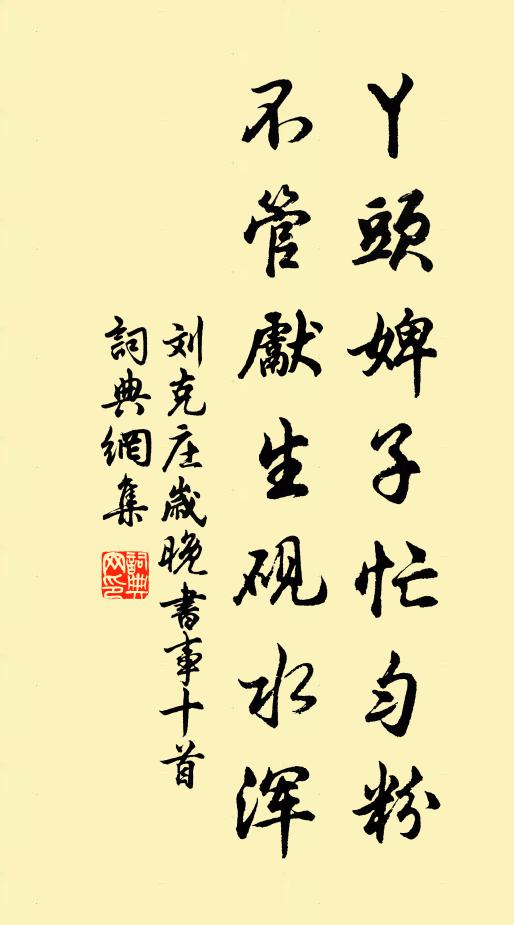 丫頭婢子忙匀粉
不管獻生硯水浑
刘克庄歳晚書事十首
詞典網集
詞典網印